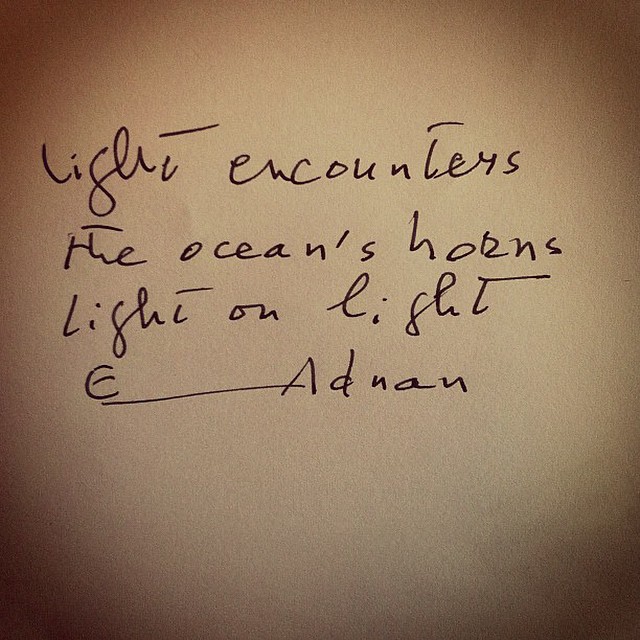 Light encounters
the ocean's horns
Light on light
E Adnan